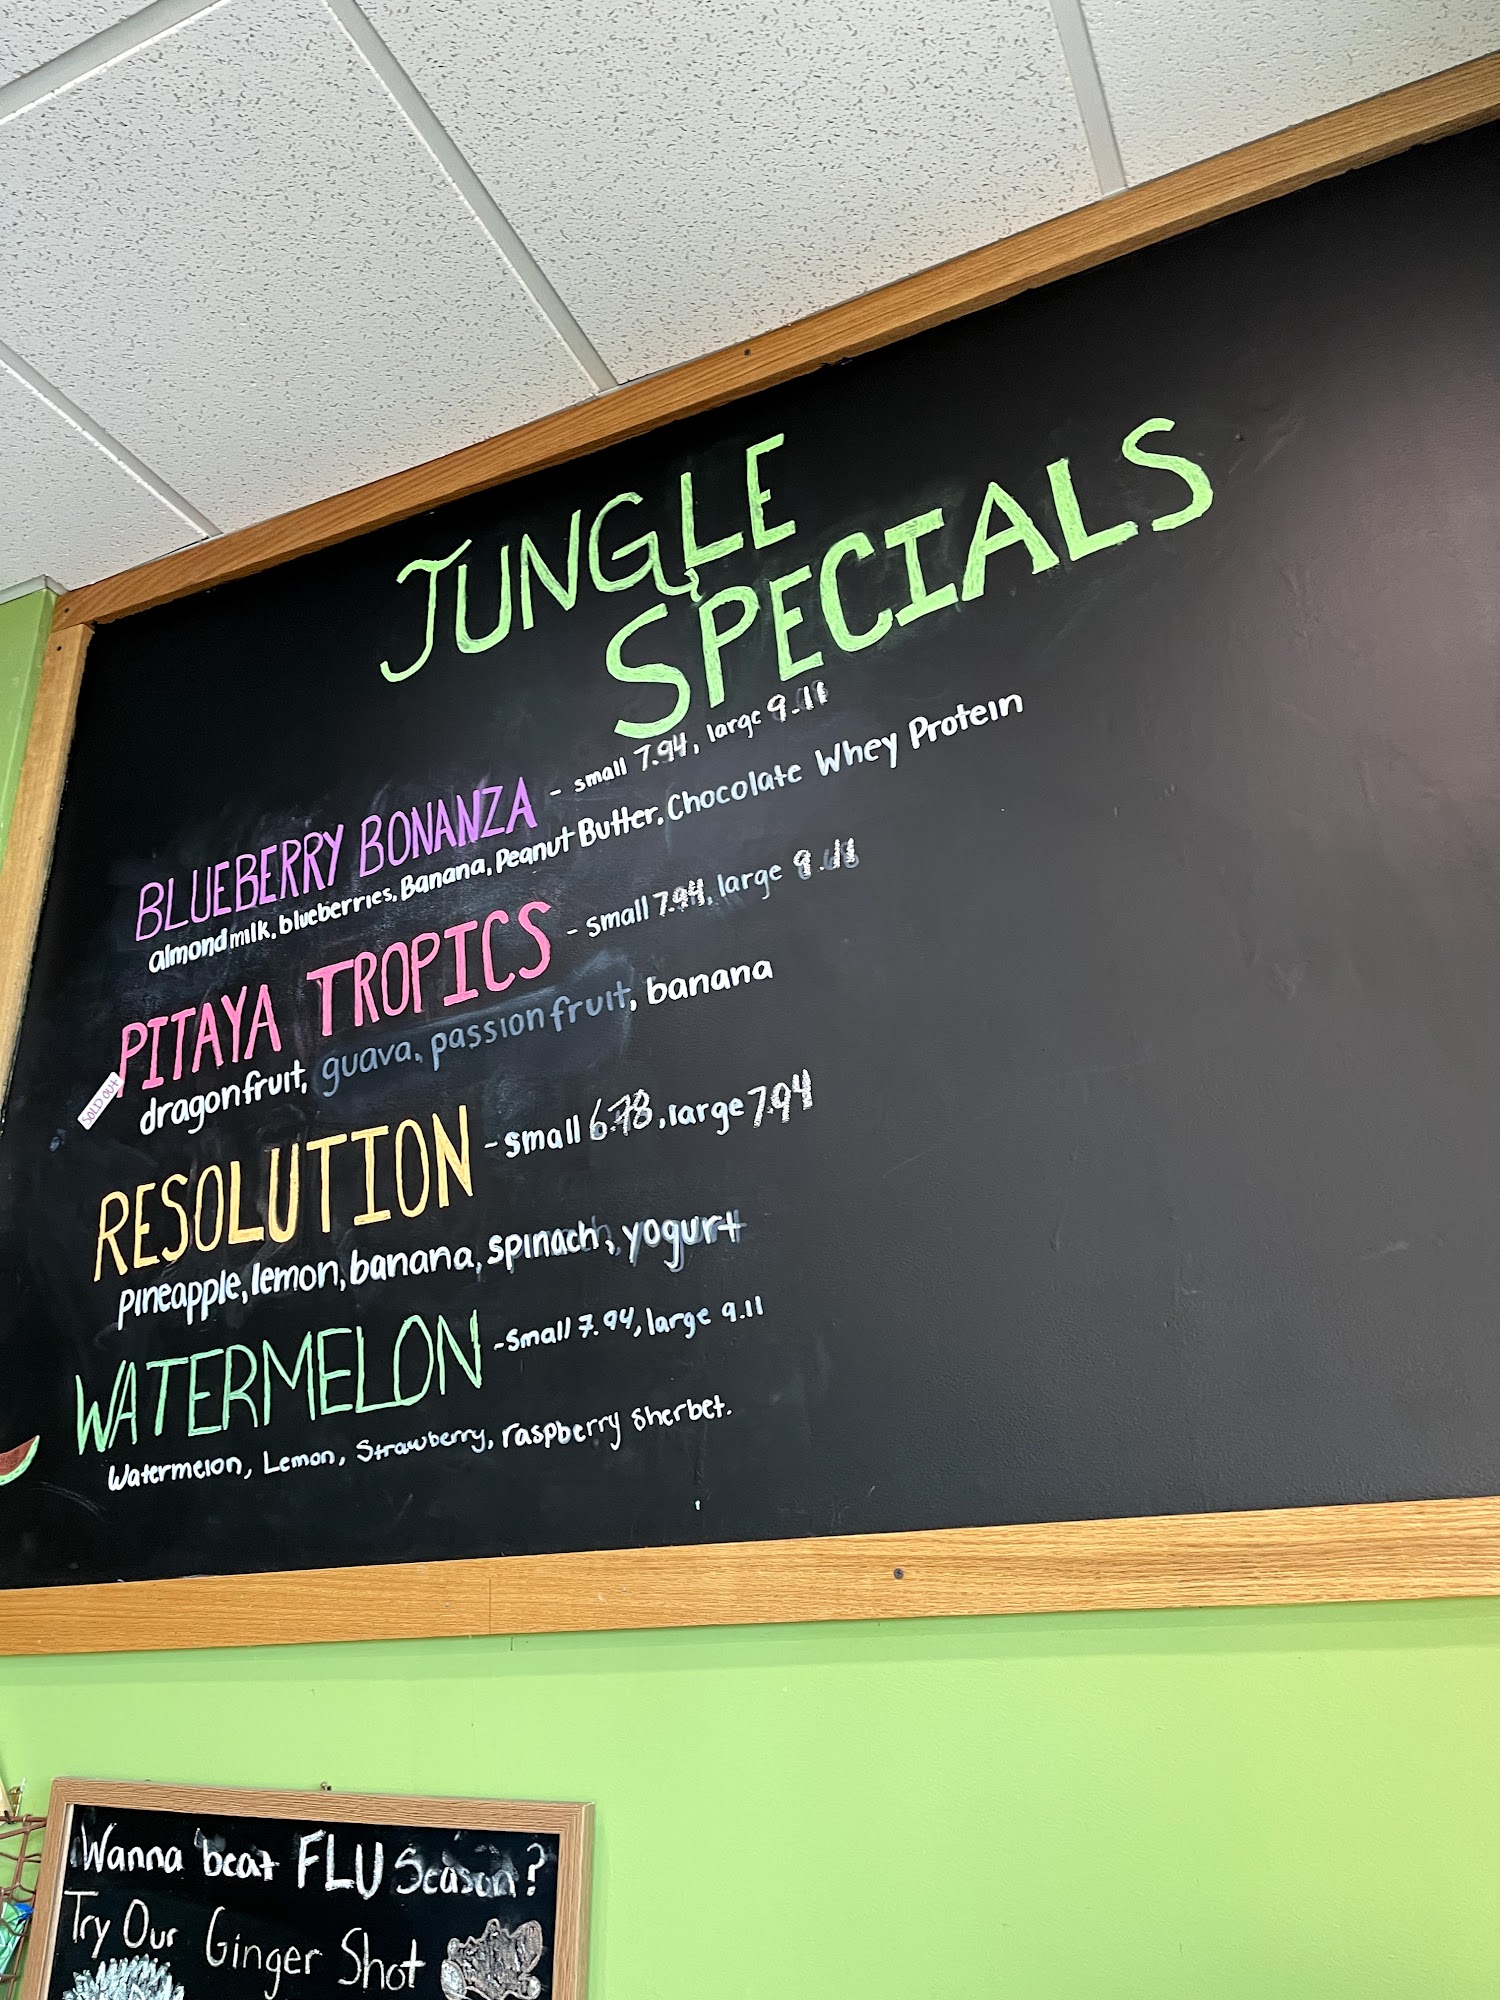 JUNGLE
SPECIALS
BLUEBERRY BONANZA - small 7.94, large 9.11
almond milk, blueberries, Banana, Peanut Butter, Chocolate Whey Protein
PITAYA TROPICS - small 7.94, large 9.11
SOLD OUT
dragonfruit, guava, passionfruit, banana
RESOLUTION - small 6.78, large 7.94
pineapple, lemon, banana, spinach, yogurt
WATERMELON - Small 7.94, large 9.11
Watermelon, Lemon, Strawberry, raspberry sherbet.
Wanna beat FLU Season?
Try Our Ginger Shot